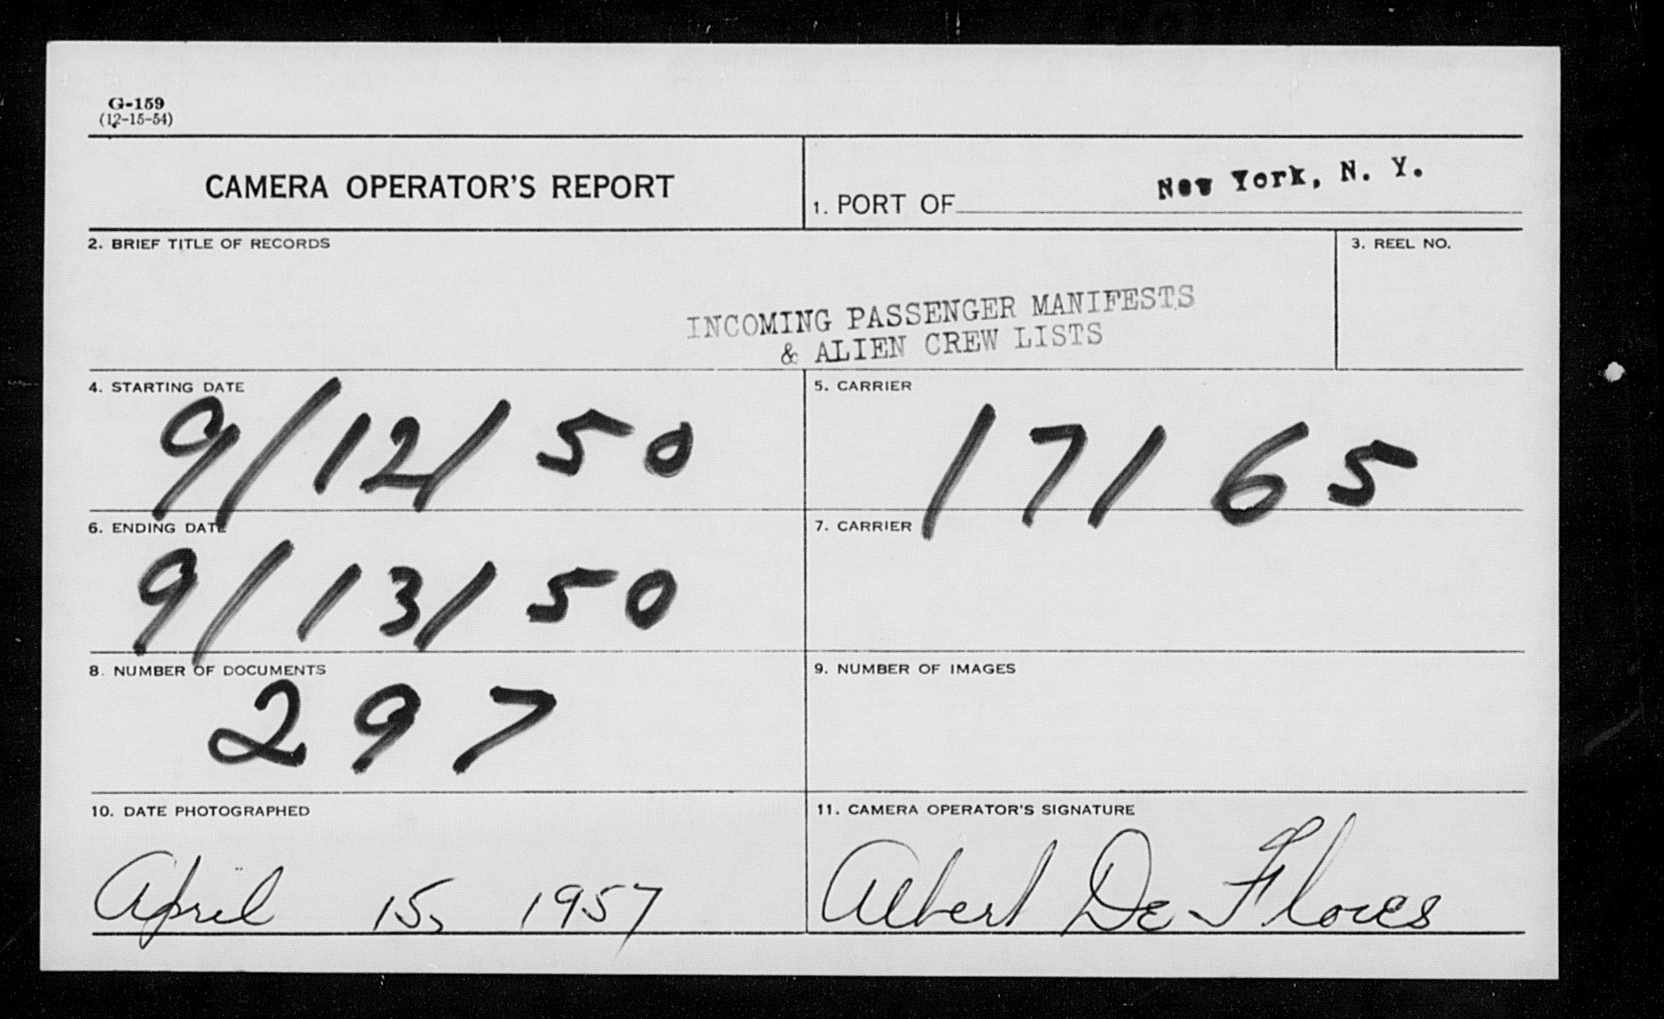 G-159
(12-15-54)
CAMERA OPERATOR'S REPORT
1. PORT OF New York, N. Y.
2. BRIEF TITLE OF RECORDS
3. REEL NO.
INCOMING PASSENGER MANIFESTS
& ALIEN CREW LISTS
4. STARTING DATE
9/12/50
5. CARRIER
17165
6. ENDING DATE
9/13/50
7. CARRIER
8. NUMBER OF DOCUMENTS
297
9. NUMBER OF IMAGES
10. DATE PHOTOGRAPHED
April 15, 1957
11. CAMERA OPERATOR'S SIGNATURE
Albert De Flores